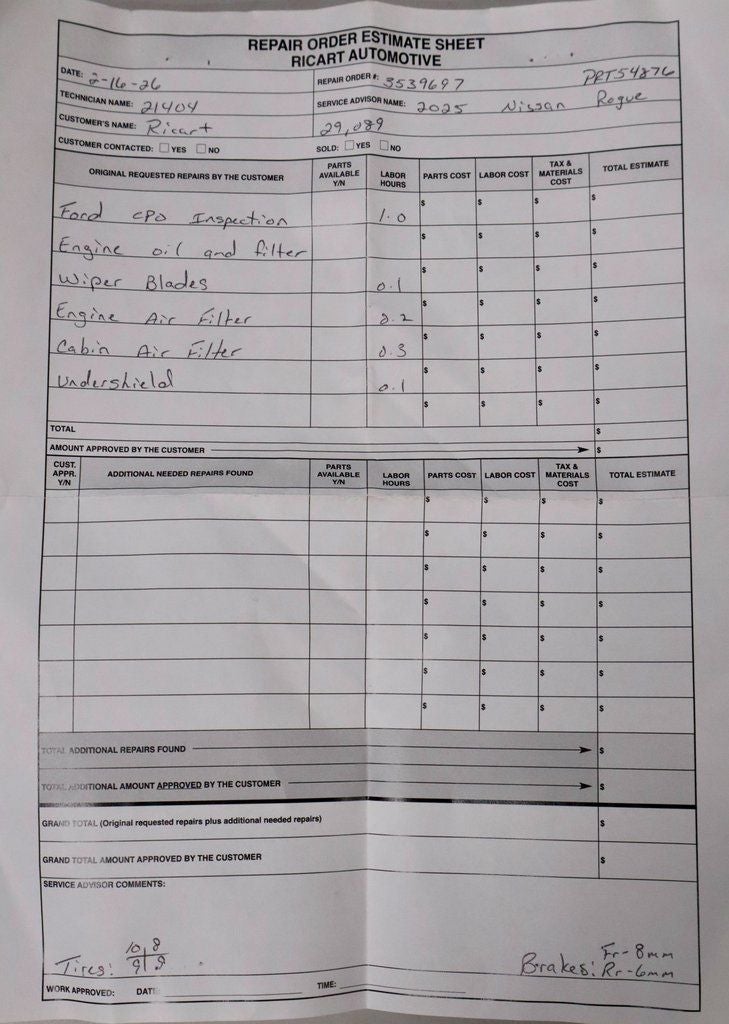 REPAIR ORDER ESTIMATE SHEET
RICART AUTOMOTIVE
DATE: 2-16-26 REPAIR ORDER #: 3539697 PRT54876
TECHNICIAN NAME: 21404 SERVICE ADVISOR NAME: 2025 Nissan Rogue
CUSTOMER'S NAME: Ricart 29,089
CUSTOMER CONTACTED: YES NO SOLD: YES NO
ORIGINAL REQUESTED REPAIRS BY THE CUSTOMER PARTS AVAILABLE Y/N LABOR HOURS PARTS COST LABOR COST TAX & MATERIALS COST TOTAL ESTIMATE
Ford CPO Inspection 1.0 $ $ $ $
Engine oil and filter $ $ $ $
Wiper Blades 0.1 $ $ $ $
Engine Air Filter 0.2 $ $ $ $
Cabin Air Filter 0.3 $ $ $ $
Undershield 0.1 $ $ $ $
$ $ $ $
TOTAL $
AMOUNT APPROVED BY THE CUSTOMER $
CUST. APPR. Y/N ADDITIONAL NEEDED REPAIRS FOUND PARTS AVAILABLE Y/N LABOR HOURS PARTS COST LABOR COST TAX & MATERIALS COST TOTAL ESTIMATE
$ $ $ $
$ $ $ $
$ $ $ $
$ $ $ $
$ $ $ $
$ $ $ $
$ $ $ $
TOTAL ADDITIONAL REPAIRS FOUND $
TOTAL ADDITIONAL AMOUNT APPROVED BY THE CUSTOMER $
GRAND TOTAL (Original requested repairs plus additional needed repairs) $
GRAND TOTAL AMOUNT APPROVED BY THE CUSTOMER $
SERVICE ADVISOR COMMENTS:
Tires: 10 8 Brakes: Fr-8mm
9 9 Rr-6mm
WORK APPROVED: DATE TIME: